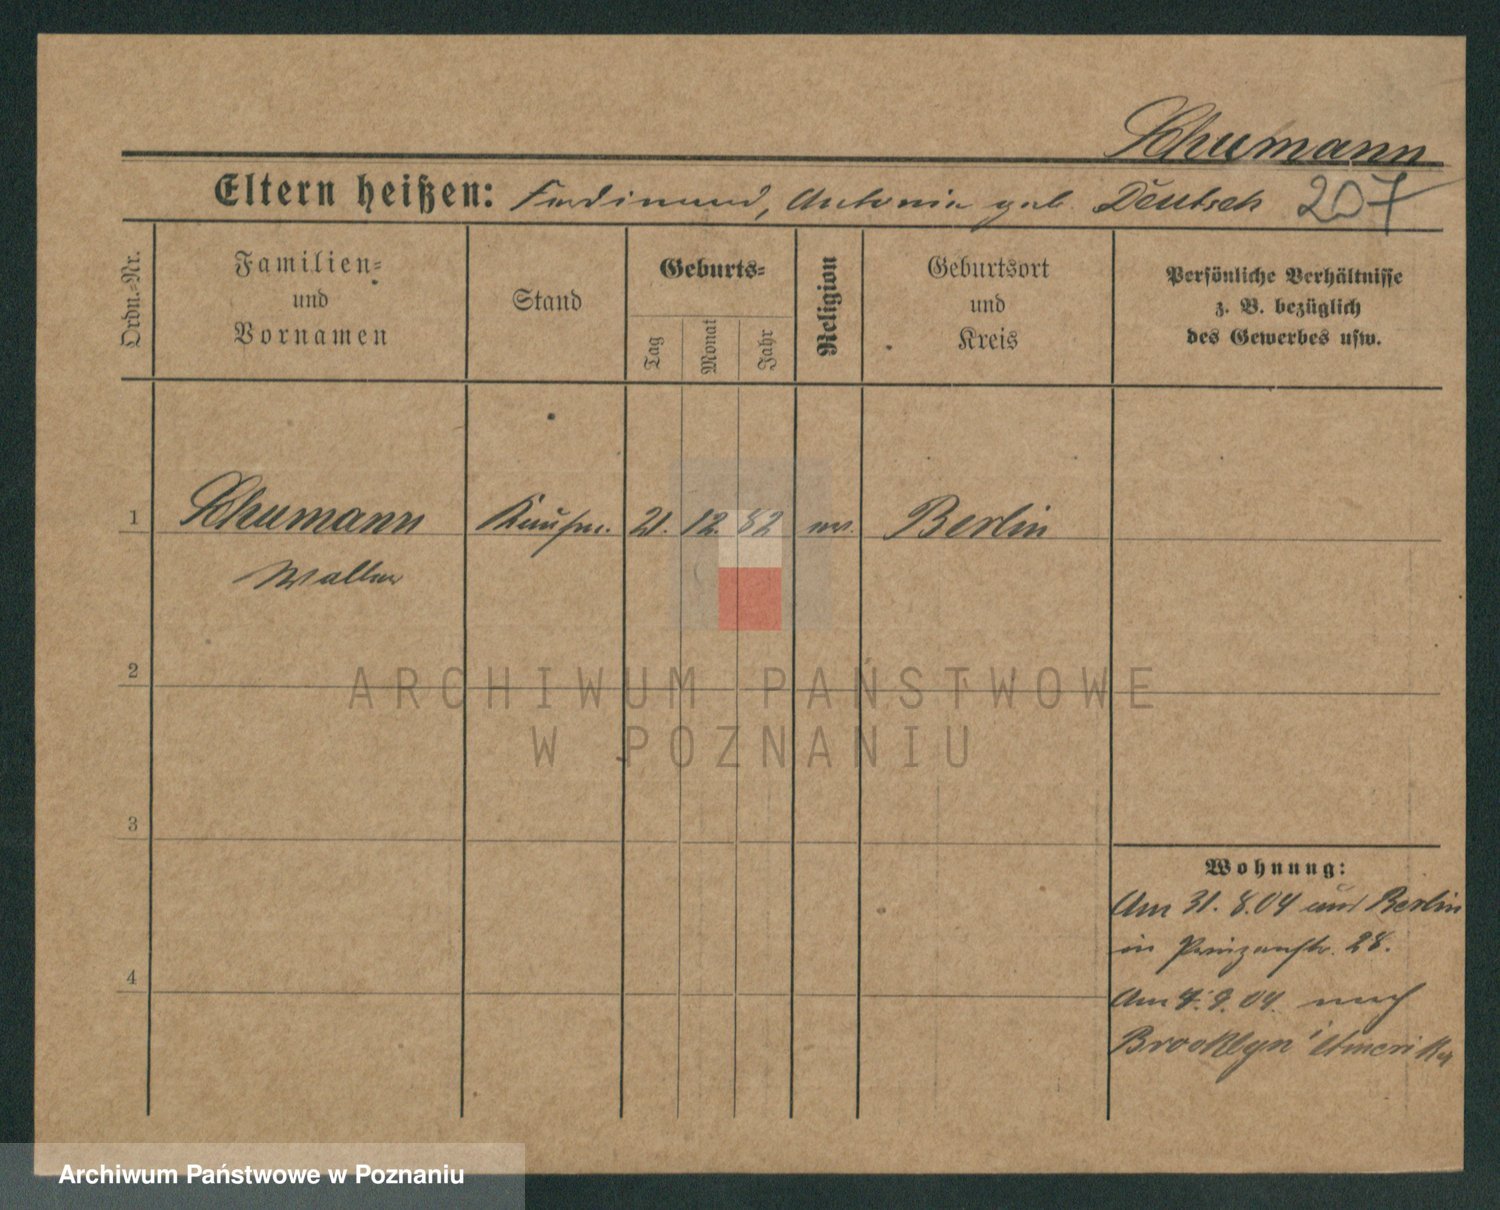 Schumann
Eltern heißen: Ferdinand, Antonie geb. Deutsch 207
Ordn.-Nr.
Familien-
und
Vornamen
Stand
Geburts-
Tag
Monat
Jahr
Religion
Geburtsort
und
Kreis
Persönliche Verhältnisse
z. B. bezüglich
des Gewerbes usw.
1 Schumann Kaufm. 21. 12. 82 ev. Berlin
Walter
2
ARCHIWUM PAŃSTWOWE
W POZNANIU
3
Wohnung:
Am 31. 8. 04 aus Berlin
in Prinzenstr. 28.
4
Am 7. 9. 04. nach
Brooklyn i Amerika
Archiwum Państwowe w Poznaniu